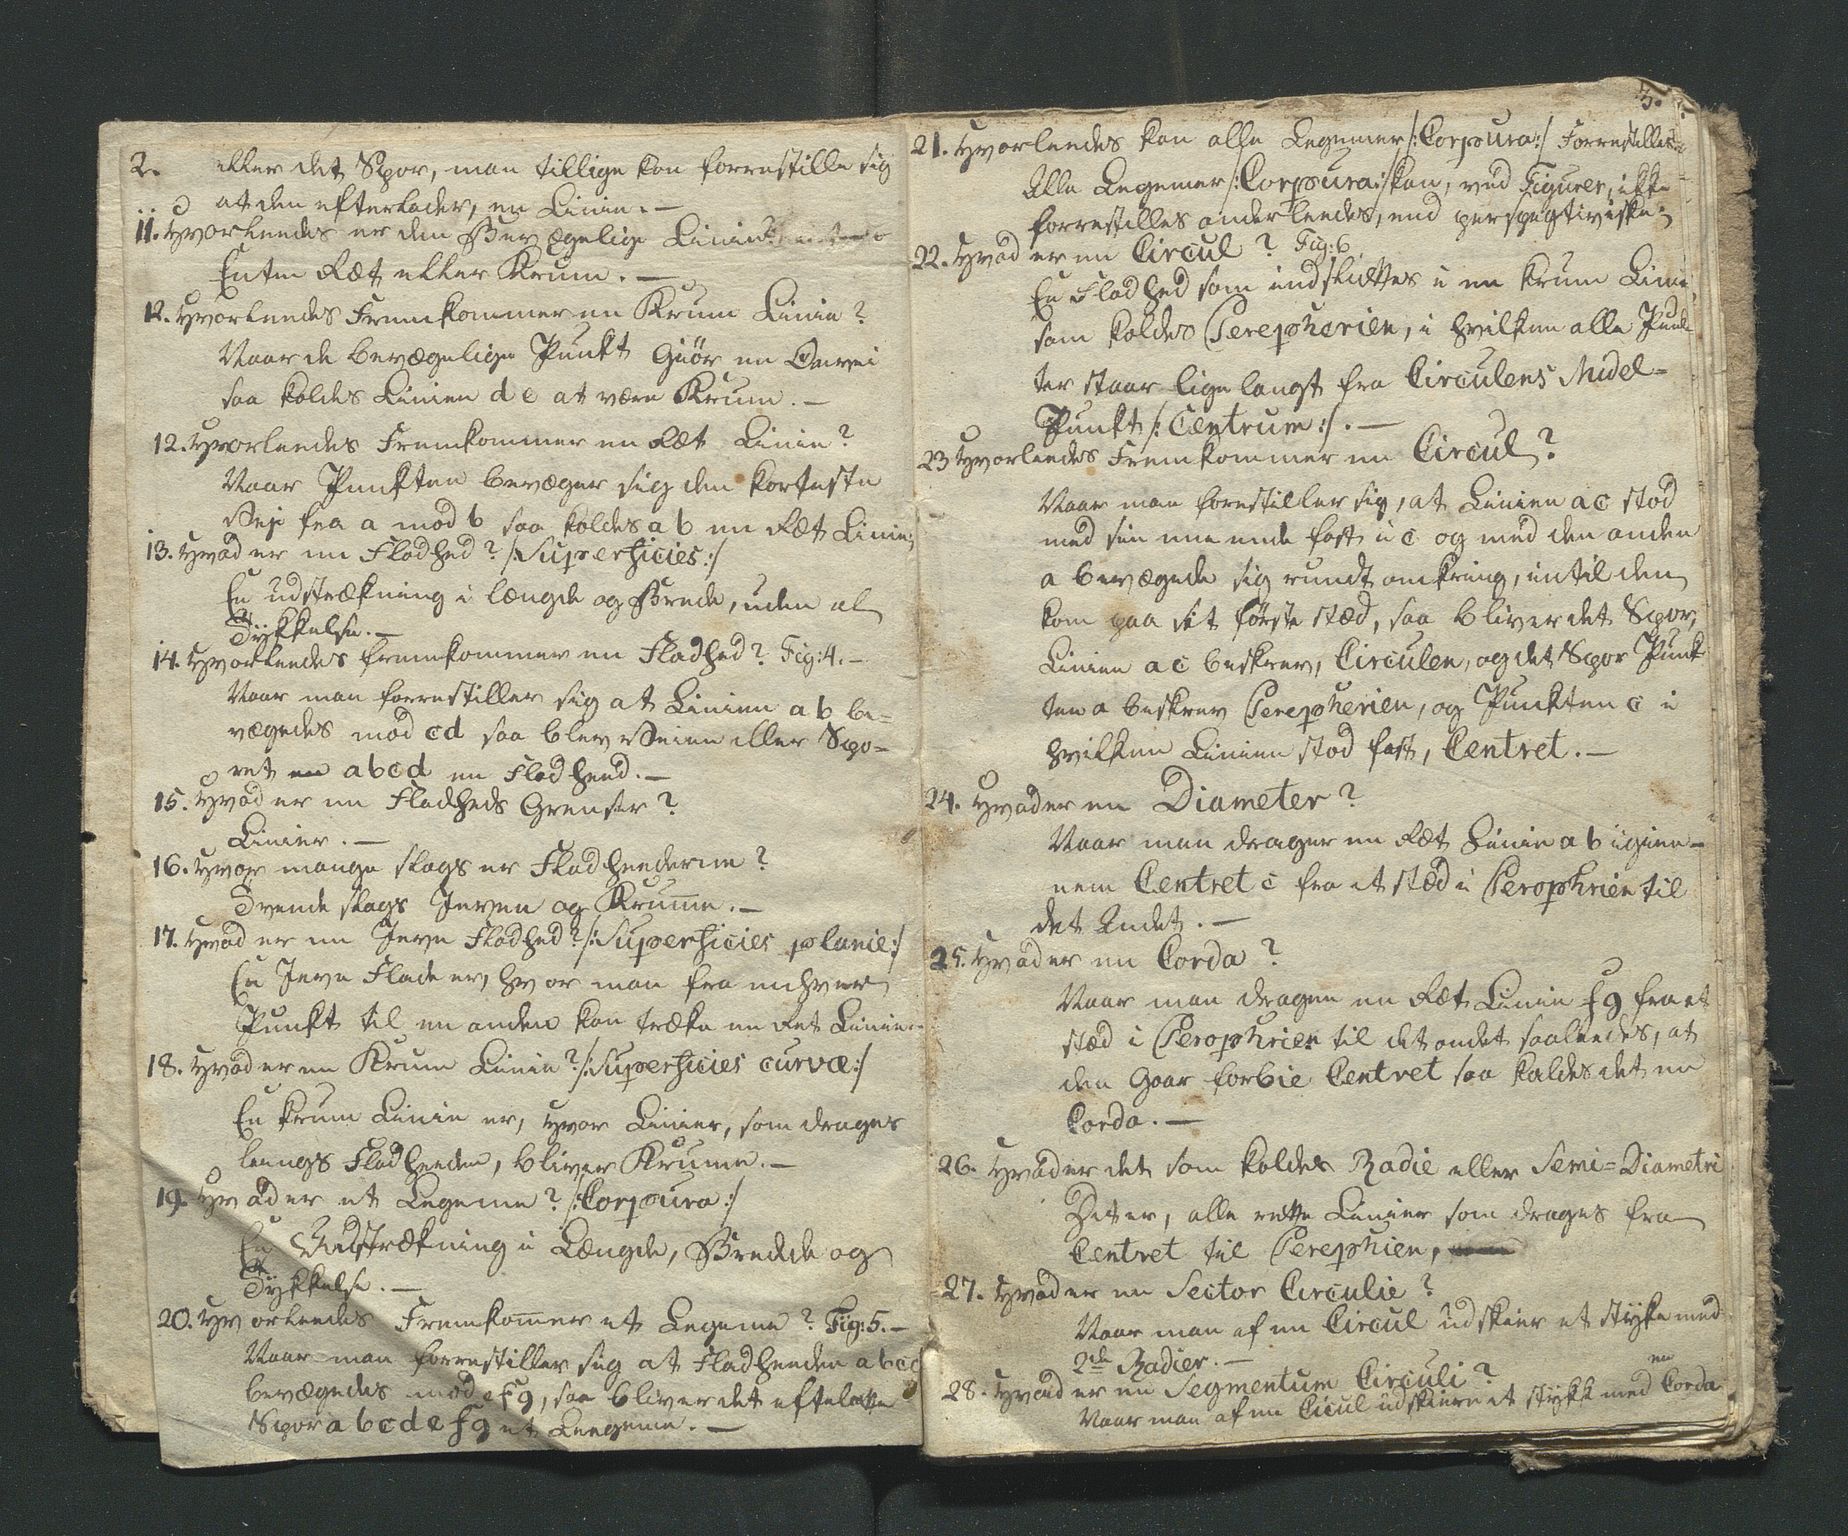 2. eller det Spor, man tillige kan forrestille sig
at den efterlader, en Linie. —
11. Hvorleedes er den Bevægelige Linie?
Enten Ræt eller Krum. —
12. Hvorleedes Fremkommer en Krum Linie?
Naar de bevægelige Punkt Giör en Omvei
saa koldes Linien d e at være Krum. —
12. Hvorleedes Fremkommer en Ræt Linie?
Naar Punkten bevæger sig den korteste
Vej fra a mod b saa koldes a b en Ræt Linie;
13. Hvad er en Fladhed? /:Superficies:/
En udstrækning i længde og Brede, uden al
Tykkelse. —
14. Hvorleedes fremkommer en Fladhed? Fig: 4. —
Naar man forrestiller sig at Linien a b be-
vægedes mod cd saa blev Veien eller Spo-
ret en abcd en Fladheed. —
15. Hvad er en Fladheds Grenser?
Linier. —
16. Hvor mange slags er Fladheederne?
Tvende slags Jevne og Krumme. —
17. Hvad er en Jevn Fladhed? /:Superficies planie:/
En Jevn Flade er, hvor man fra enhver
Punkt til en anden kan træke en Ret Linie.
18. Hvad er en Krum Linie? /:Superficies curvæ:/
En krum Linie er, hvor Linier, som drages
lengs Fladheeden, bliver Krumme. —
19. Hvad er et Legeme? /:Corpura:/
En Udstrækning i Længde, Bredde og
Tykkelse. —
20. Hvorleedes Fremkommer et Legeme? Fig: 5. —
Naar man forrestiller sig at Fladheeden abcd
bevægedes mod efg, saa bliver det efterlatte
Spor abcdefg et Leegeme. —
3.
21. Hvorleedes kan alle Legemer /:Corpura:/ Forrestilles?
Alle Legemer /:Corpura:/ kan, ved Figurer, ikke
forrestilles anderleedes, end perspegtiviske;
22. Hvad er en Circul? Fig: 6
En Fladhed som indsluttes i en krum Linie,
som koldes Perepherien, i hvilken alle Punk-
ter staar lige langt fra Circulens Midel-
Punkt /:Centrum:/. —
23 Hvorleedes Fremkommer en Circul?
Naar man forestiller sig, at Linien ac stod
med sin ene ende fast i c og med den anden
a bevægede sig rundt omkring, intil den
kom paa sit første stæd, saa bliver det Spor,
Linien ac beskrev, Circulen, og det Spor Punk-
ten a beskrev Perepherien, og Punkten c i
hvilken Linien stod fast, Centret. —
24. Hvad er en Diameter?
Naar man drager en Ræt Linie ab igien-
nem Centret c fra et stæd i Perophrien til
det Andet. —
25. Hvad er en Corda?
Naar man dragen en Ræt Linie fg fra et
stæd i Perophrien til det andet saaleedes, at
den Gaar forbie Centret saa kaldes det en
Corda. —
26. Hvad er det som koldes Radie eller Semi=Diametri
Det er, alle rette Linier som drages fra
Centret til Perephien,
27. Hvad er en Sector Circulie?
Naar man af en Circul udskier et styke med
2de Radier. —
28. Hvad er en Segmentum Circuli?
Naar man af en Cicul udskiere et stykke med en Corda